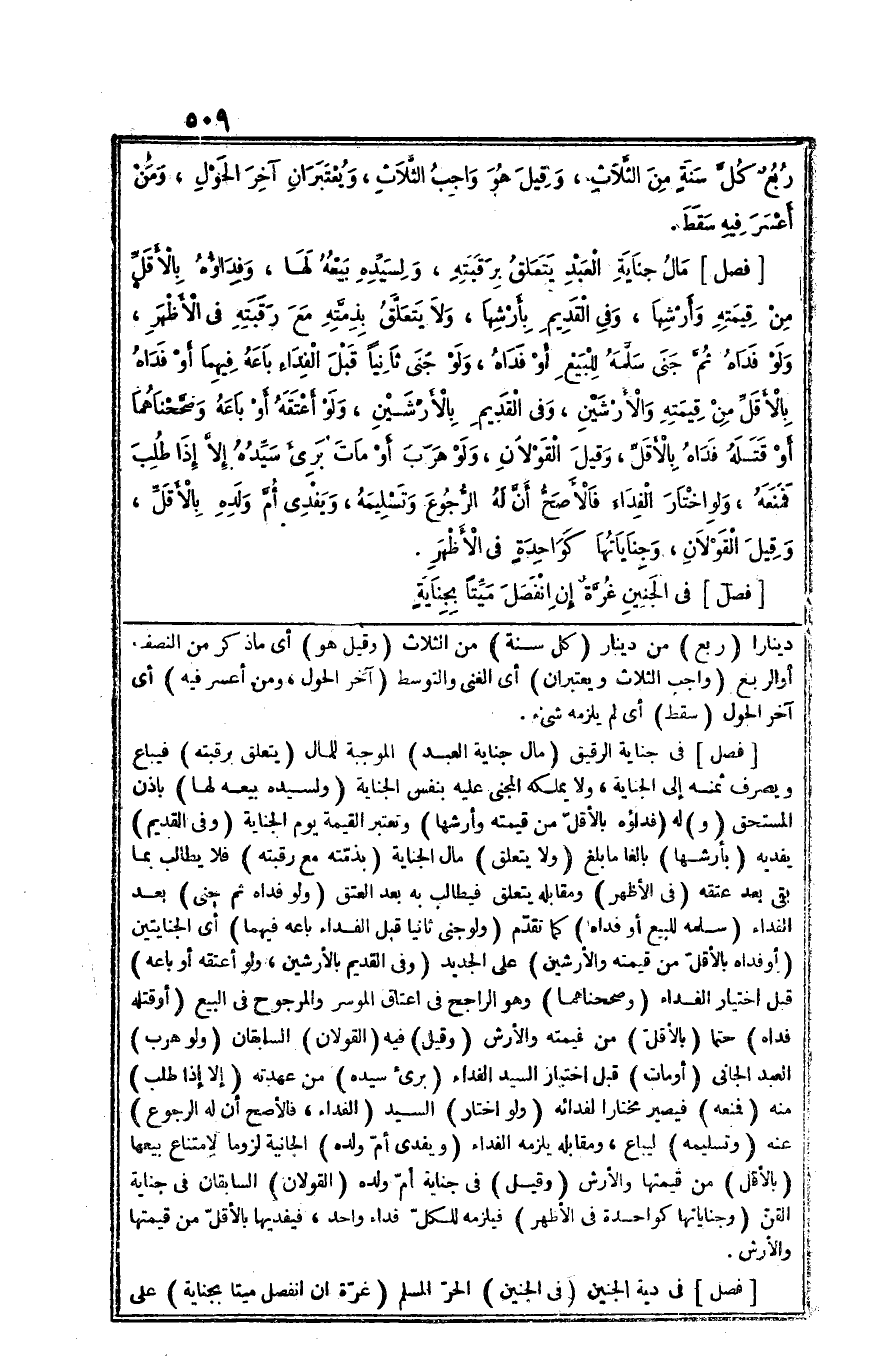 ٥٠٩
رُبُعٌ كُلَّ سَنَةٍ مِنَ الثَّلَاثِ ، وَقِيلَ هُوَ وَاجِبُ الثَّلَاثِ ، وَيُعْتَبَرَانِ آخِرَ الحَوْلِ ، وَمَنْ
أَعْسَرَ فِيهِ سَقَطَ .
[ فصل ] مَالُ جِنَايَةِ الْعَبْدِ يَتَعَلَّقُ بِرَقَبَتِهِ ، وَلِسَيِّدِهِ بَيْعُهُ لَهَا ، وَفِدَاؤُهُ بِالْأَقَلِّ
مِنْ قِيمَتِهِ وَأَرْشِهَا ، وَفِي الْقَدِيمِ بِأَرْشِهَا ، وَلَا يَتَعَلَّقُ بِذِمَّتِهِ مَعَ رَقَبَتِهِ فِى الْأَظْهَرِ ،
وَلَوْ فَدَاهُ ثُمَّ جَنَى سَلَّمَهُ لِلْبَيْعِ أَوْ فَدَاهُ ، وَلَوْ جَنَى ثَانِياً قَبْلَ الْفِدَاءِ بَاعَهُ فِيهِمَا أَوْ فَدَاهُ
بِالْأَقَلِّ مِنْ قِيمَتِهِ وَالْأَرْشَيْنِ ، وَفِى الْقَدِيمِ بِالْأَرْشَيْنِ ، وَلَوْ أَعْتَقَهُ أَوْ بَاعَهُ وَصَحَّحْنَاهُمَا
أَوْ قَتَلَهُ فَدَاهُ بِالْأَقَلِّ ، وَقِيلَ الْقَوْلَانِ ، وَلَوْ هَرَبَ أَوْ مَاتَ بَرِىَٔ سَيِّدُهُ إِلَّا إِذَا طُلِبَ
فَمَنَعَهُ ، وَلَوِ اخْتَارَ الْفِدَاءَ فَالْأَصَحُّ أَنَّ لَهُ الرُّجُوعَ وَتَسْلِيمَهُ ، وَيَفْدِى أُمَّ وَلَدِهِ بِالْأَقَلِّ ،
وَقِيلَ الْقَوْلَانِ ، وَجِنَايَاتُهَا كَوَاحِدَةٍ فِى الْأَظْهَرِ .
[ فصل ] فِى الجَنِينِ غُرَّةٌ إِنِ انْفَصَلَ مَيِّتاً بِجِنَايَةٍ
دينارا ( ربع ) من دينار ( كل سنة ) من الثلاث ( وقيل هو ) أى ماذكر من النصف
أوالربع ( واجب الثلاث ويعتبران ) أى الغنى والتوسط ( آخر الحول ، ومن أعسر فيه ) أى
آخر الحول ( سقط ) أى لم يلزمه شىء .
[ فصل ] فى جناية الرقيق ( مال جناية العبد ) الموجبة للمال ( يتعلق برقبته ) فيباع
ويصرف ثمنه إلى الجناية ، ولا يملكه المجنى عليه بنفس الجناية ( ولسيده بيعه لها ) باذن
المستحق ( و ) له ( فداؤه بالأقلّ من قيمته وأرشها ) وتعتبر القيمة يوم الجناية ( وفى القديم )
يفديه ( بأرشها ) بالغا مابلغ ( ولا يتعلق ) مال الجناية ( بذمّته مع رقبته ) فلا يطالب بما
بقى بعد عتقه ( فى الأظهر ) ومقابله يتعلق فيطالب به بعد العتق ( ولو فداه ثم جنى ) بعد
الفداء ( سلمه للبيع أو فداه ) كما تقدّم ( ولوجنى ثانيا قبل الفداء باعه فيهما ) أى الجنايتين
( أوفداه بالأقلّ من قيمته والأرشين ) على الجديد ( وفى القديم بالأرشين ، ولو أعتقه أو باعه )
قبل اختيار الفداء ( وصححناهما ) وهو الراجح فى اعتاق الموسر والمرجوح فى البيع ( أوقتله
فداه ) حتما ( بالأقلّ ) من قيمته والأرش ( وقيل ) فيه ( القولان ) السابقان ( ولو هرب )
العبد الجانى ( أومات ) قبل اختيار السيد الفداء ( برئ سيده ) من عهدته ( إلا إذا طلب )
منه ( فمنعه ) فيصير مختارا لفدائه ( ولو اختار ) السيد ( الفداء ، فالأصح أن له الرجوع )
عنه ( وتسليمه ) ليباع ، ومقابله يلزمه الفداء ( ويفدى أمّ ولده ) الجانية لزوما لامتناع بيعها
( بالأقل ) من قيمتها والأرش ( وقيل ) فى جناية أمّ ولده ( القولان ) السابقان فى جناية
القنّ ( وجناياتها كواحدة فى الأظهر ) فيلزمه للكلّ فداء واحد ، فيفديها بالأقلّ من قيمتها
والأرش .
[ فصل ] فى دية الجنين ( فى الجنين ) الحرّ المسلم ( غرّة ان انفصل ميتا بجناية ) على